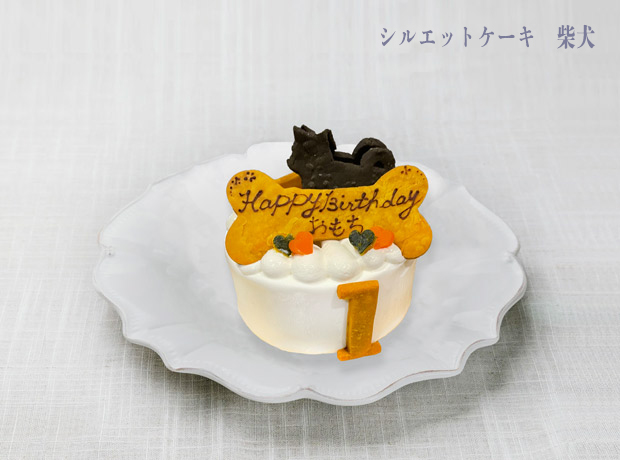 シルエットケーキ　柴犬
Happy Birthday
おもち
1